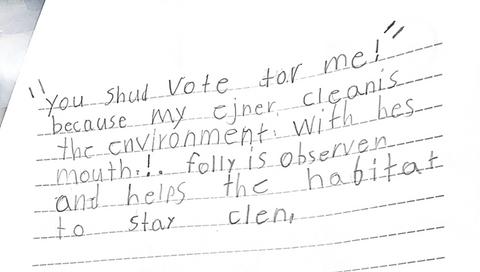 "You shud vote for me!"
because my ejner cleanis
the environment. With hes
mouth.!. folly is observen
and helps the habitat
to stay clen.